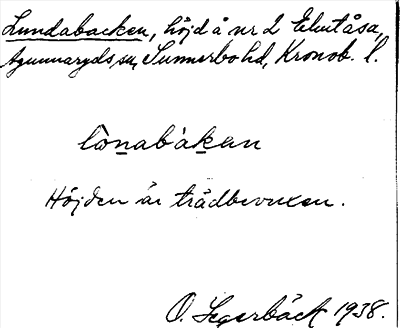 Lundabacken, höjd å nr 2 Elmtåsa,
Agunnaryds sn, Sunnerbo hd, Kronob. l.
lònabàkan
Höjden är trädbevuxen.
O. Segerbäck 1938.